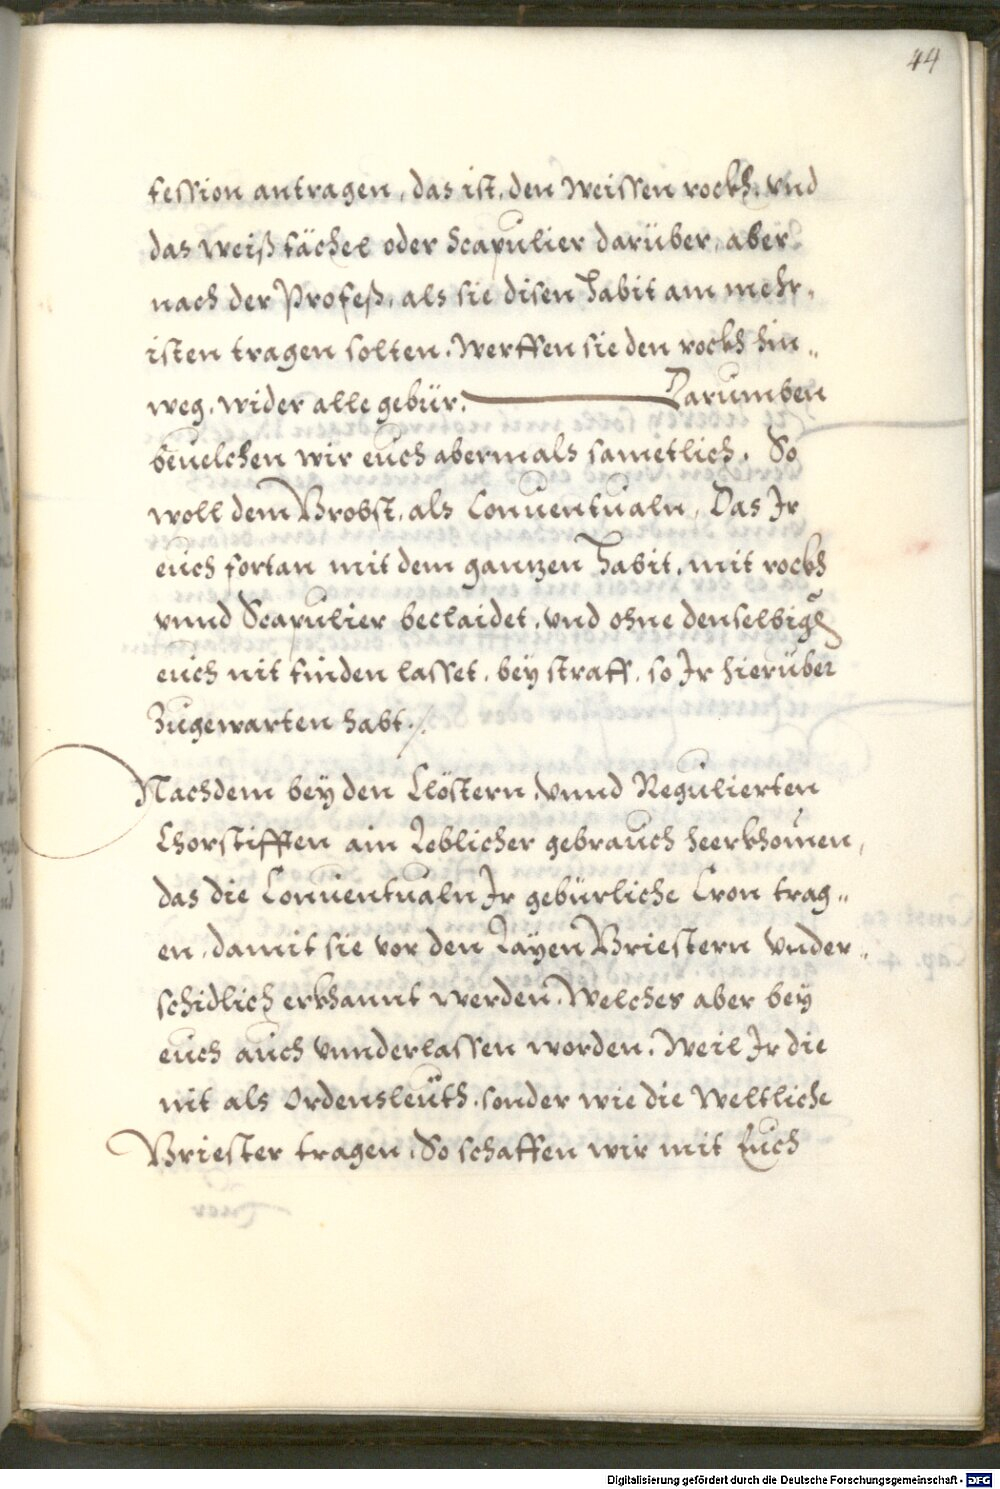 44
fession antragen, das ist, den Weissen rockh, vnd
das weiß fächel oder Scapulier darüber, aber
nach der Profeß, als sie disen habit am mehr,
isten tragen solten, Werffen sie den rockh hin„
weg, wider alle gebür. Darumben
beuelchen wir euch abermals sametlich, So
woll dem Brobst, als Conuentualn, Das Ir
euch fortan mit dem ganzen habit, mit rockh
vnnd Scapulier beclaidet, vnd ohne denselbigē
euch nit finden lasset, bey straff, so Ir hierüber
Zugewarten habt./.
Nachdem bey den Clöstern, vnnd Regulierten
Chorstifften ain Leblicher gebrauch heerkhom̄en,
das die Conuentualn Ir gebürliche Cron trag„
en, damit sie vor den Layen Briestern vnder„
schidlich erkhannt werden, Welches aber bey
euch auch vnnderlassen worden, Weil Ir die
nit als Ordensleüth, sonder wie die Weltliche
Briester tragen, So schaffen wir mit Euch
Digitalisierung gefördert durch die Deutsche Forschungsgemeinschaft - DFG